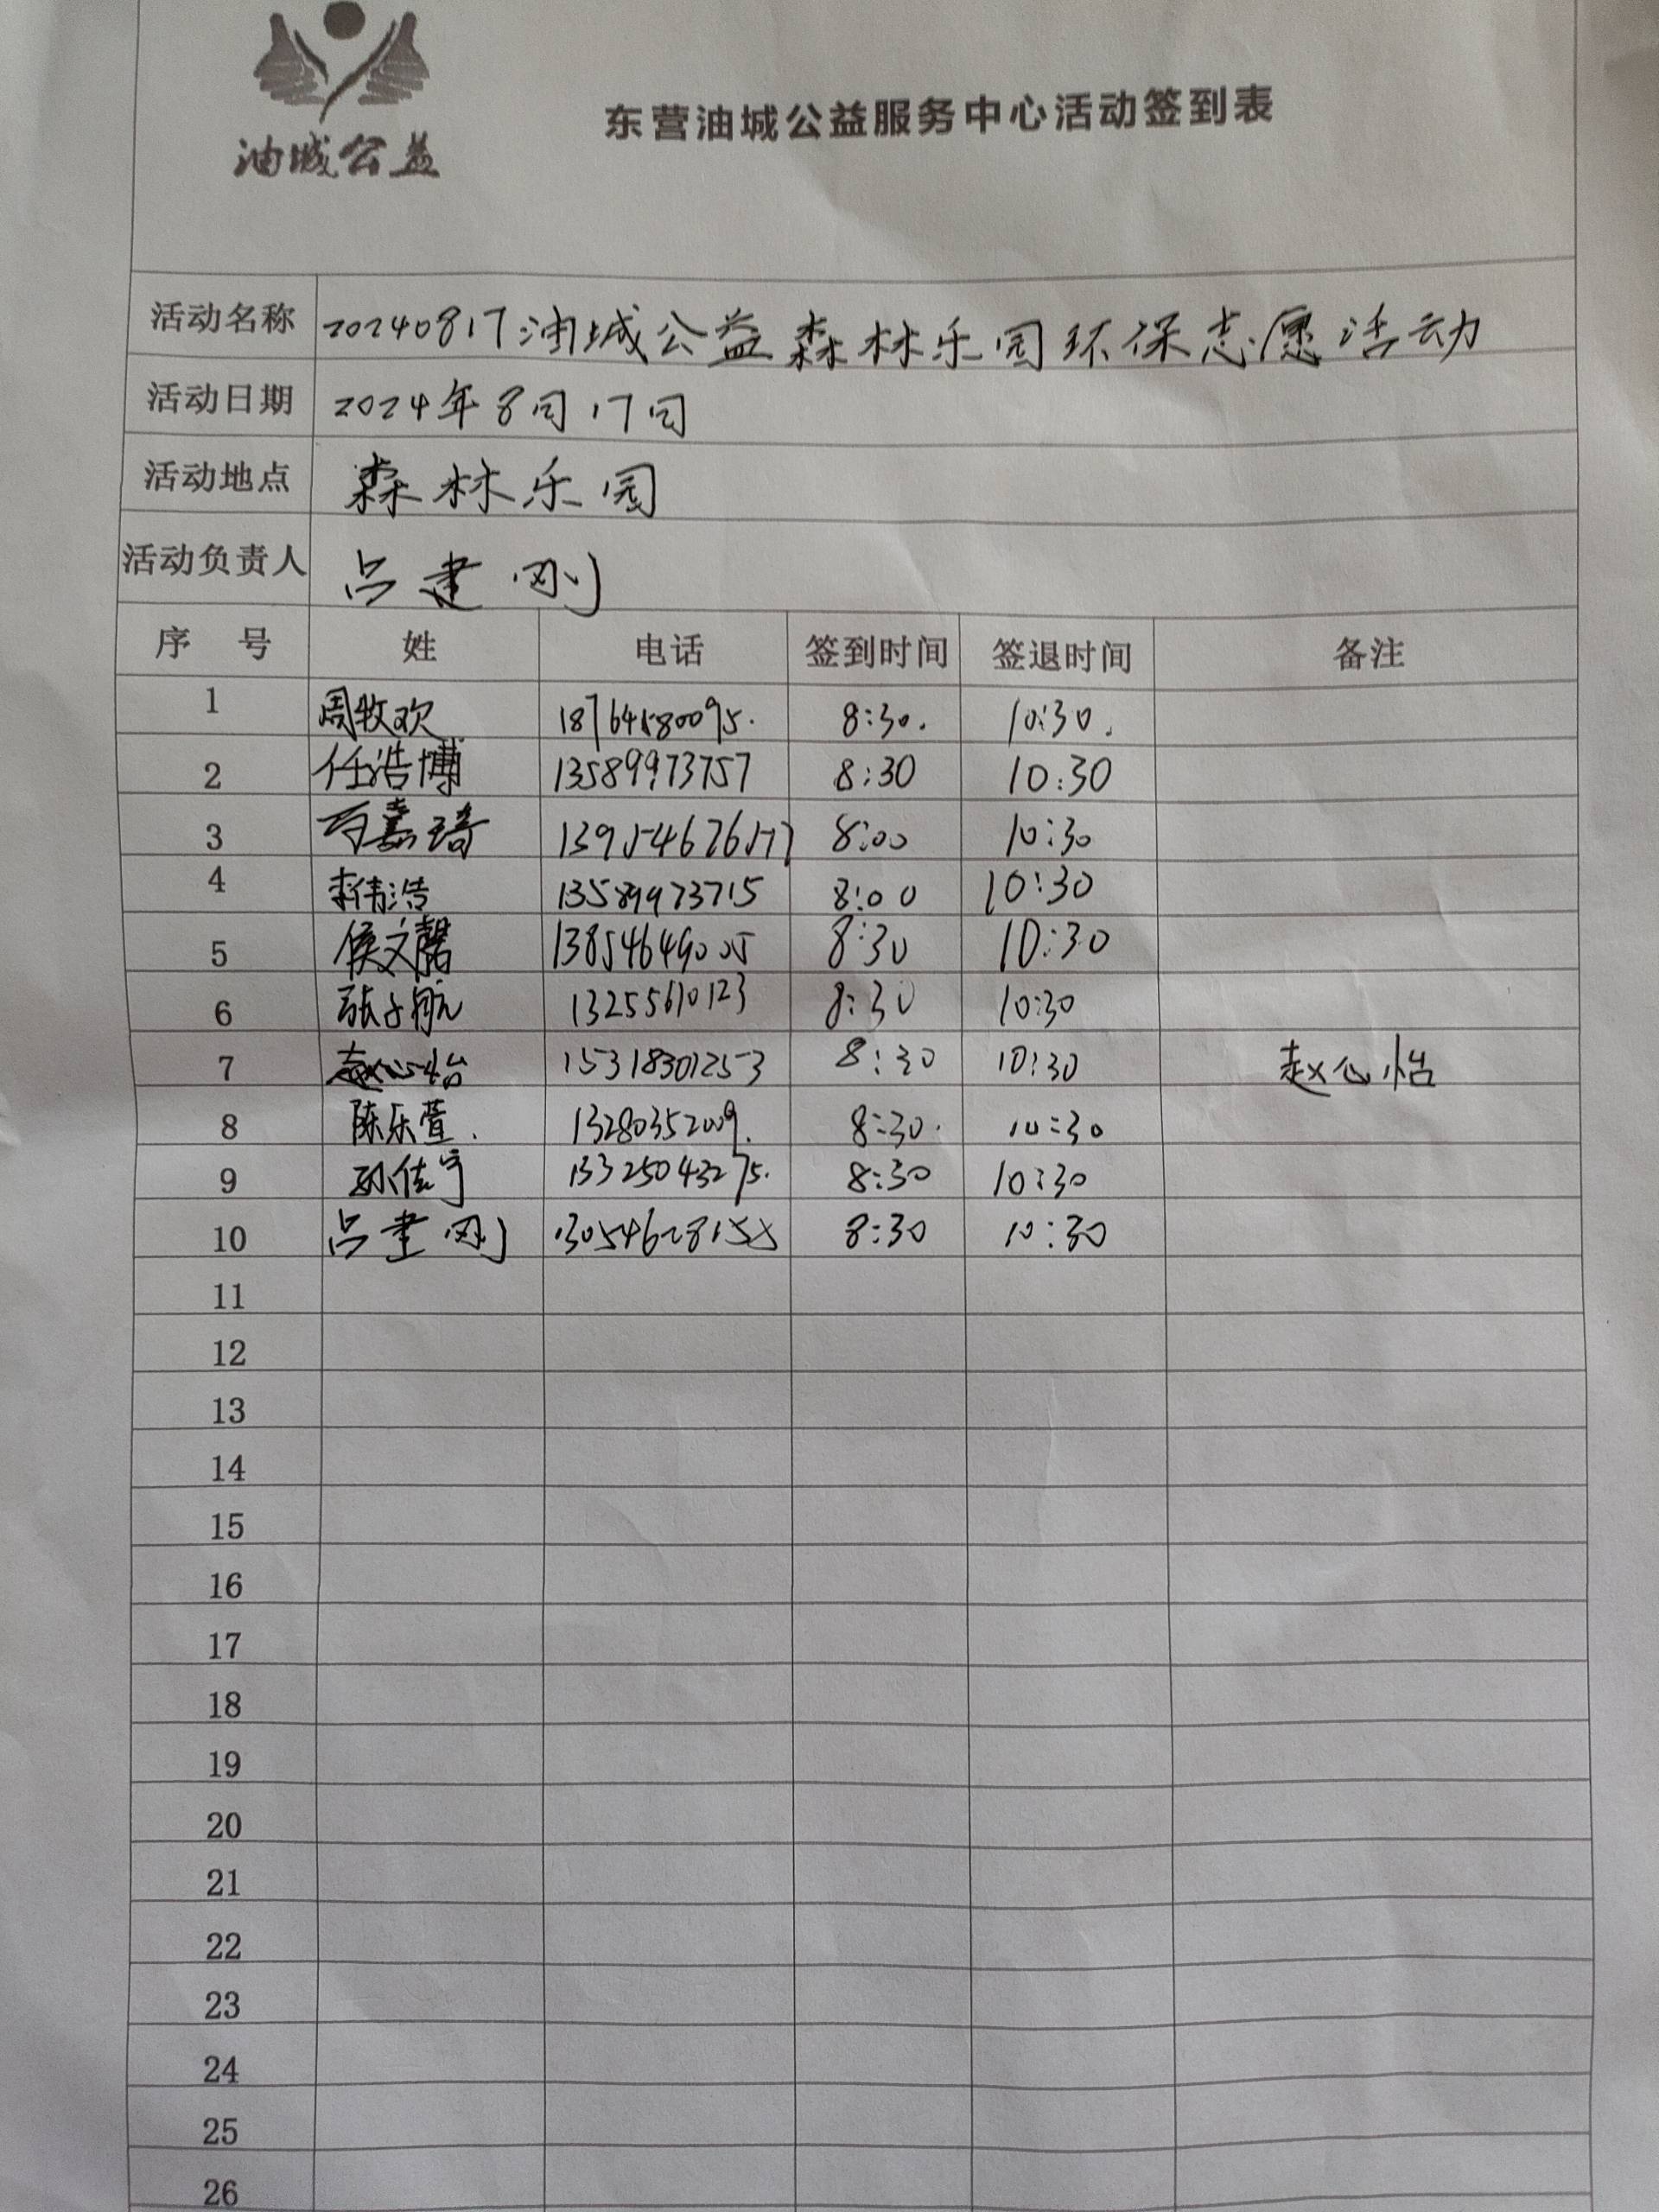 油城公益
东营油城公益服务中心活动签到表
活动名称 20240817油城公益森林乐园环保志愿活动
活动日期 2024年8月17日
活动地点 森林乐园
活动负责人 吕建刚
序 号 姓 电话 签到时间 签退时间 备注
1 周牧欢 18764580095. 8:30. 10:30.
2 任浩博 13589973757 8:30 10:30
3 嘉琦 8:00 10:30
4 李伟浩 13589973715 8:00 10:30
5 侯文馨 13854649005 8:30 10:30
6 张子航 13255610123 8:30 10:30
7 赵心怡 15318301253 8:30 10:30 赵心怡
8 陈乐萱. 13280352009. 8:30. 10:30
9 孙佳宇 13325043275. 8:30 10:30
10 吕建刚 13054628155 8:30 10:30
11
12
13
14
15
16
17
18
19
20
21
22
23
24
25
26